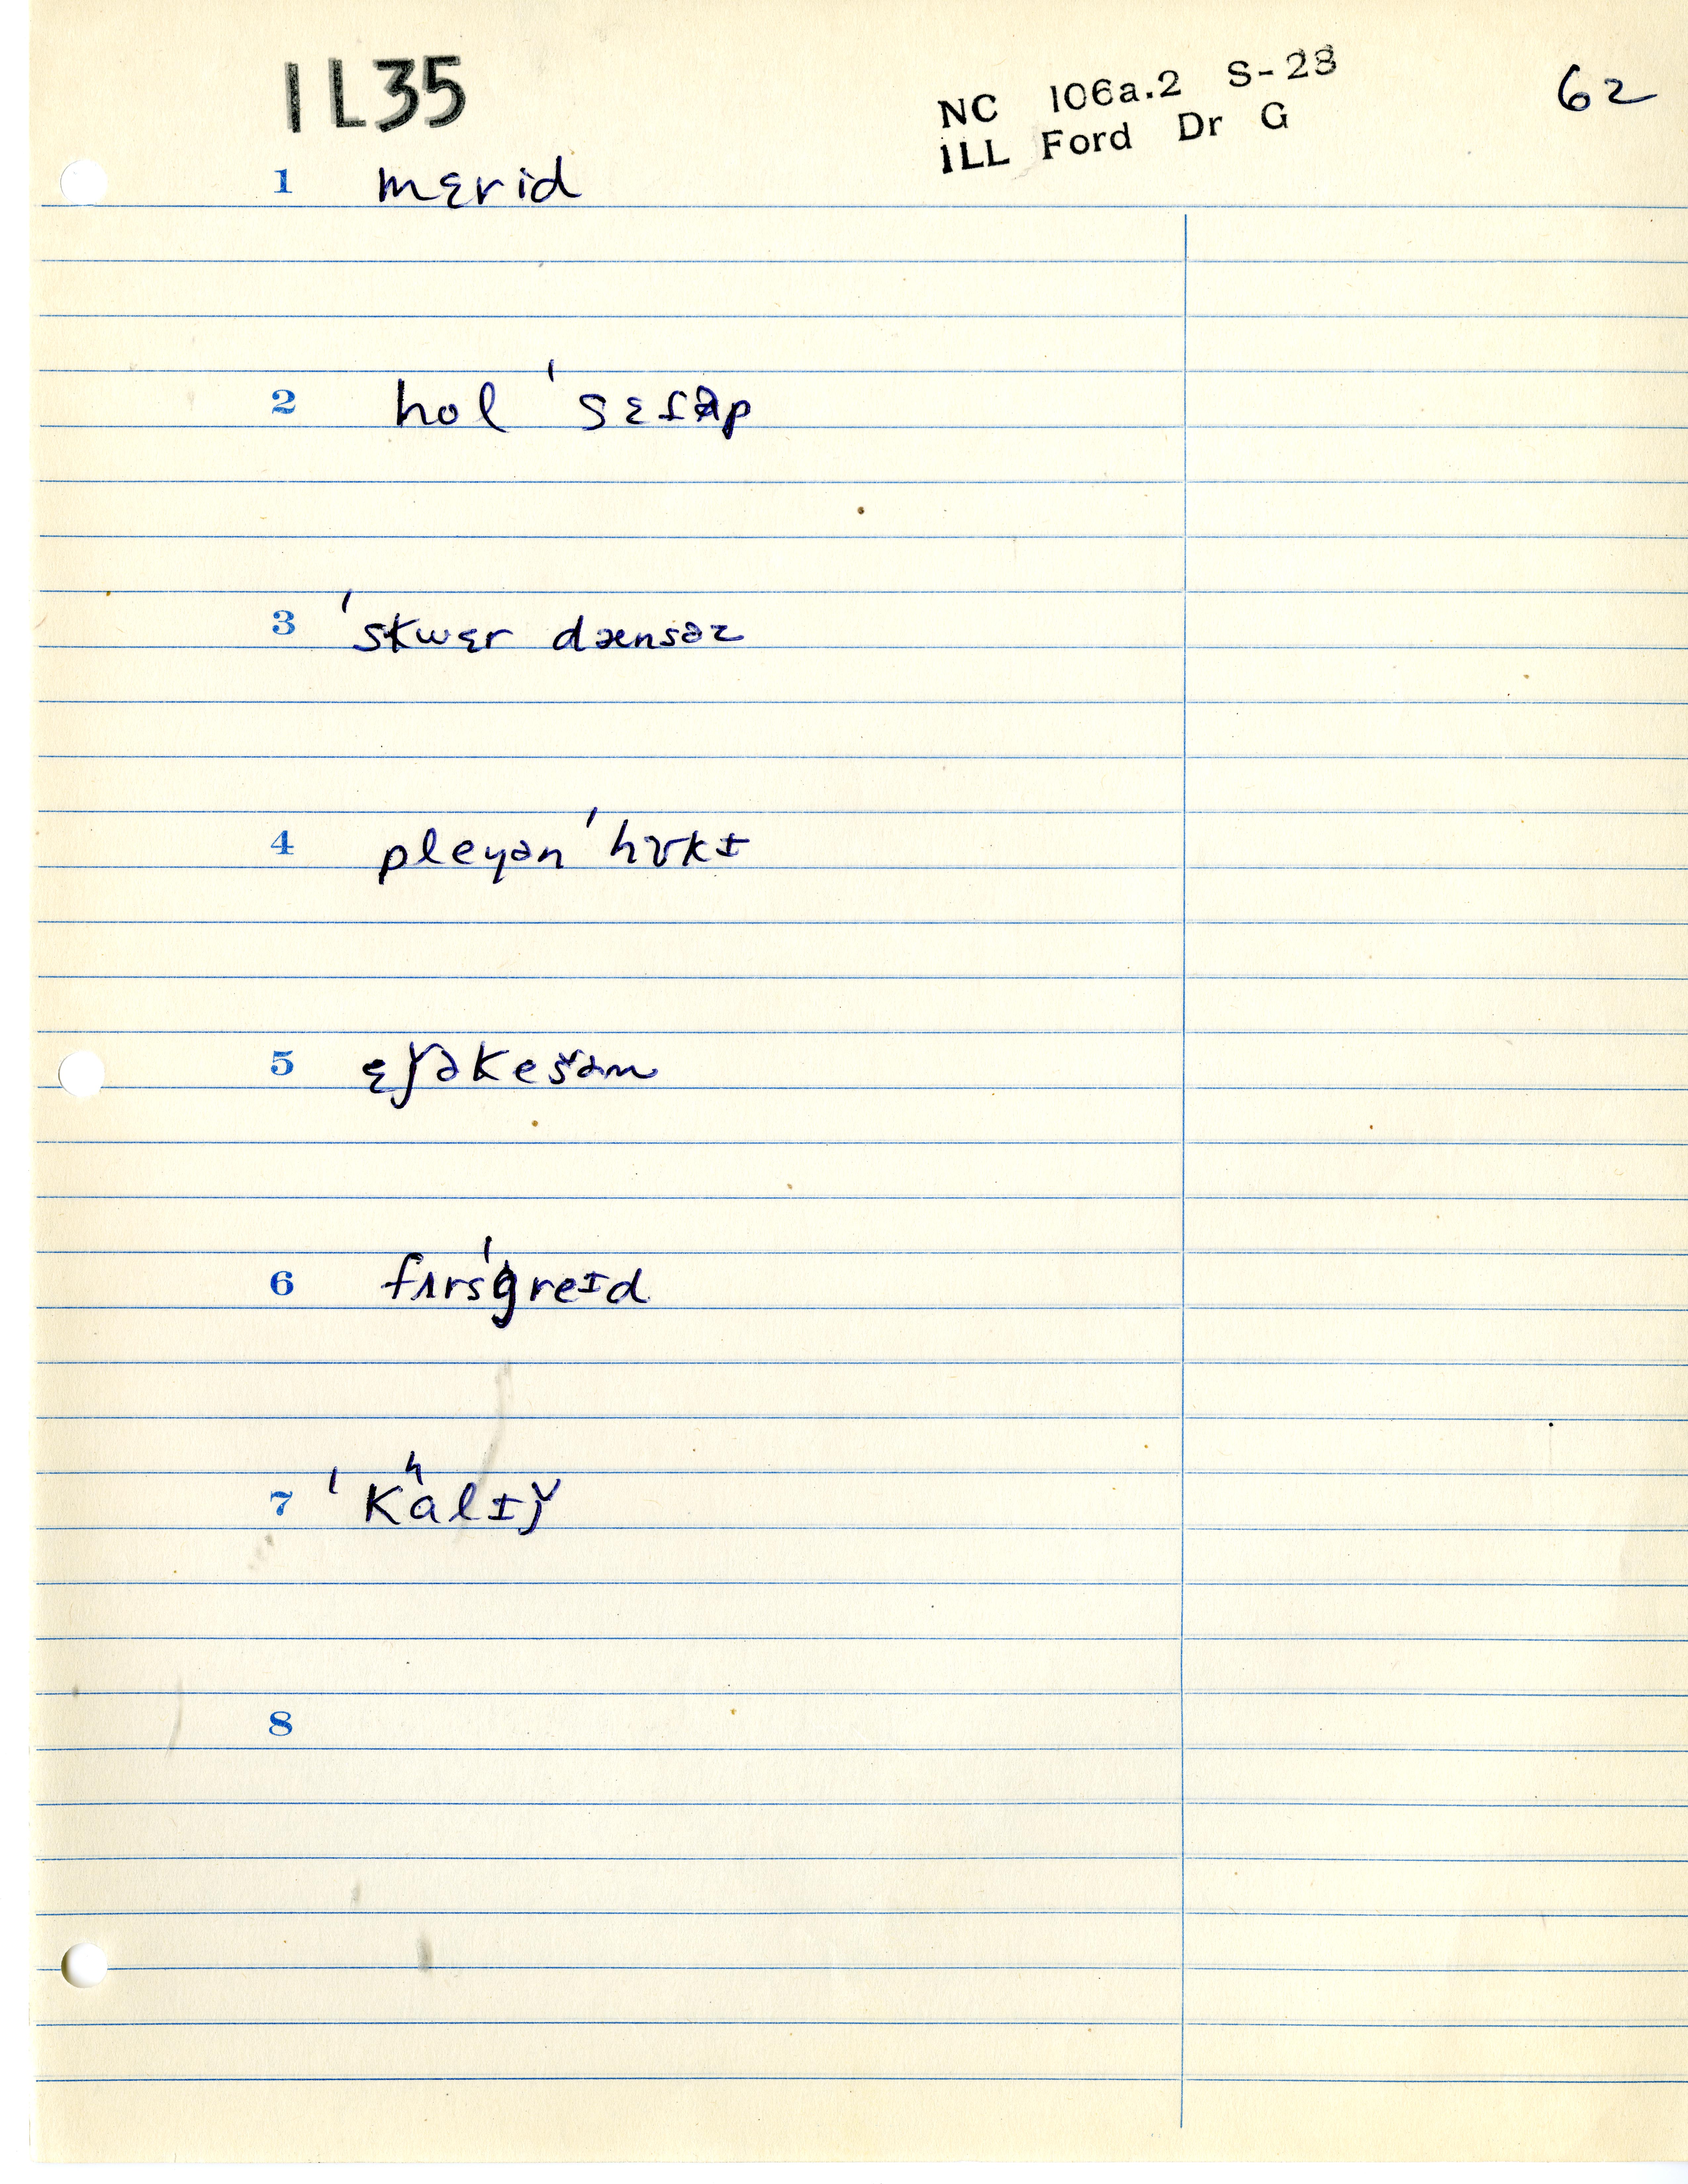 1L35
NC 106a.2 S-23
ILL Ford Dr G
62
1 mɛrid
2 hol ˈsɛtəp
3 ˈskwɛr dænsəz
4 pleyən ˈhʊkɪ
5 ɛǰəkešən
6 fʌrsˈgreɪd
7 ˈkʰalɪǰ
8